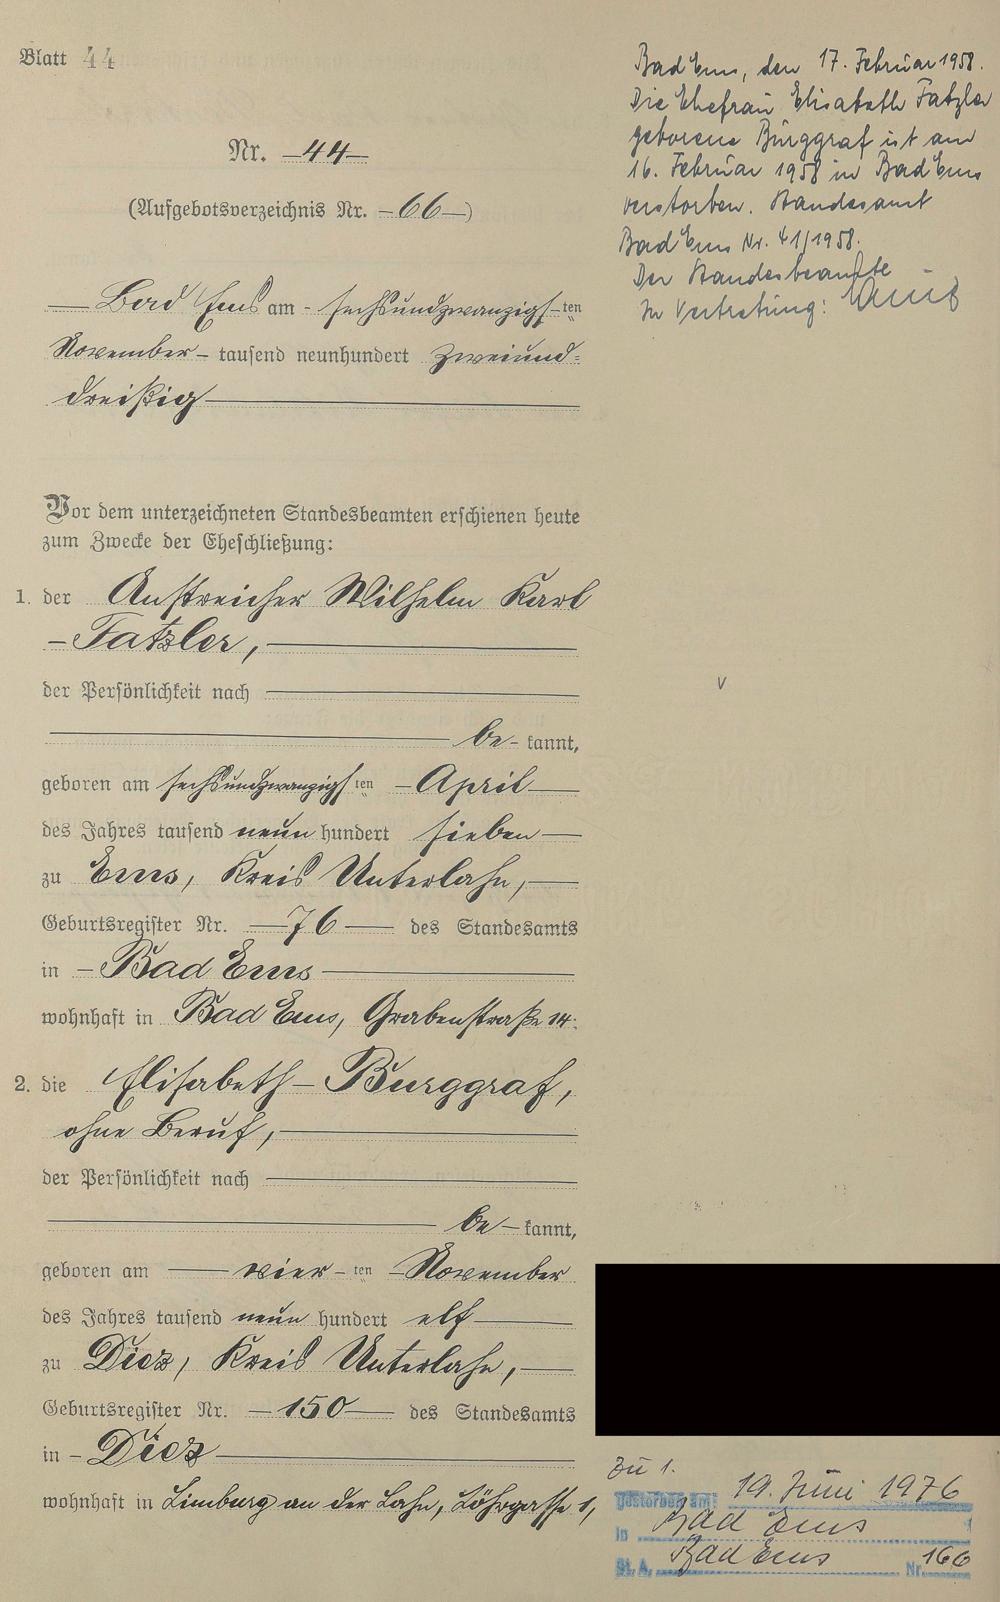 Blatt 44
Nr. 44
(Aufgebotsverzeichnis Nr. 66)
Bad Ems am sechsundzwanzigsten
November tausend neunhundert zweiund-
dreißig
Vor dem unterzeichneten Standesbeamten erschienen heute
zum Zwecke der Eheschließung:
1. der Anstreicher Wilhelm Karl
Fatzler,
der Persönlichkeit nach
be-kannt,
geboren am sechsundzwanzigsten April
des Jahres tausend neun hundert sieben
zu Ems, Kreis Unterlahn,
Geburtsregister Nr. 76 des Standesamts
in Bad Ems
wohnhaft in Bad Ems, Grabenstraße 14.
2. die Elisabeth Burggraf,
ohne Beruf,
der Persönlichkeit nach
be-kannt,
geboren am vier-ten November
des Jahres tausend neun hundert elf
zu Diez, Kreis Unterlahn,
Geburtsregister Nr. 150 des Standesamts
in Diez
wohnhaft in Limburg an der Lahn, Löhrgasse 1,
Bad Ems, den 17. Februar 1958.
Die Ehefrau Elisabeth Fatzler
geborene Burggraf ist am
16. Februar 1958 in Bad Ems
verstorben. Standesamt
Bad Ems Nr. 41/1958.
Der Standesbeamte
In Vertretung:
Zu 1.
gestorben am: 19. Juni 1976
in Bad Ems
St. A. Bad Ems Nr. 166